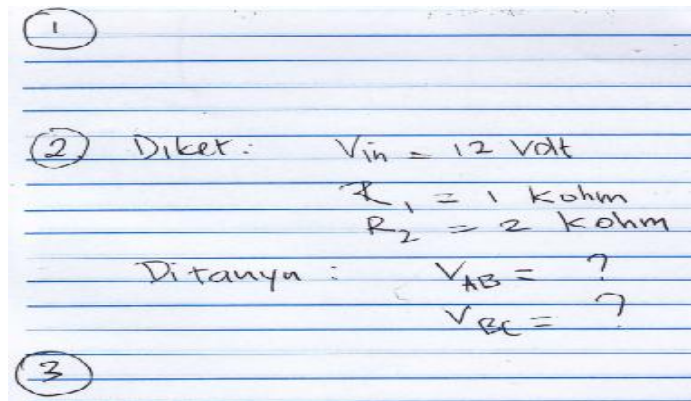 1
2 Diket: Vin = 12 Volt
R1 = 1 Kohm
R2 = 2 Kohm
Ditanya : VAB = ?
VBC = ?
3